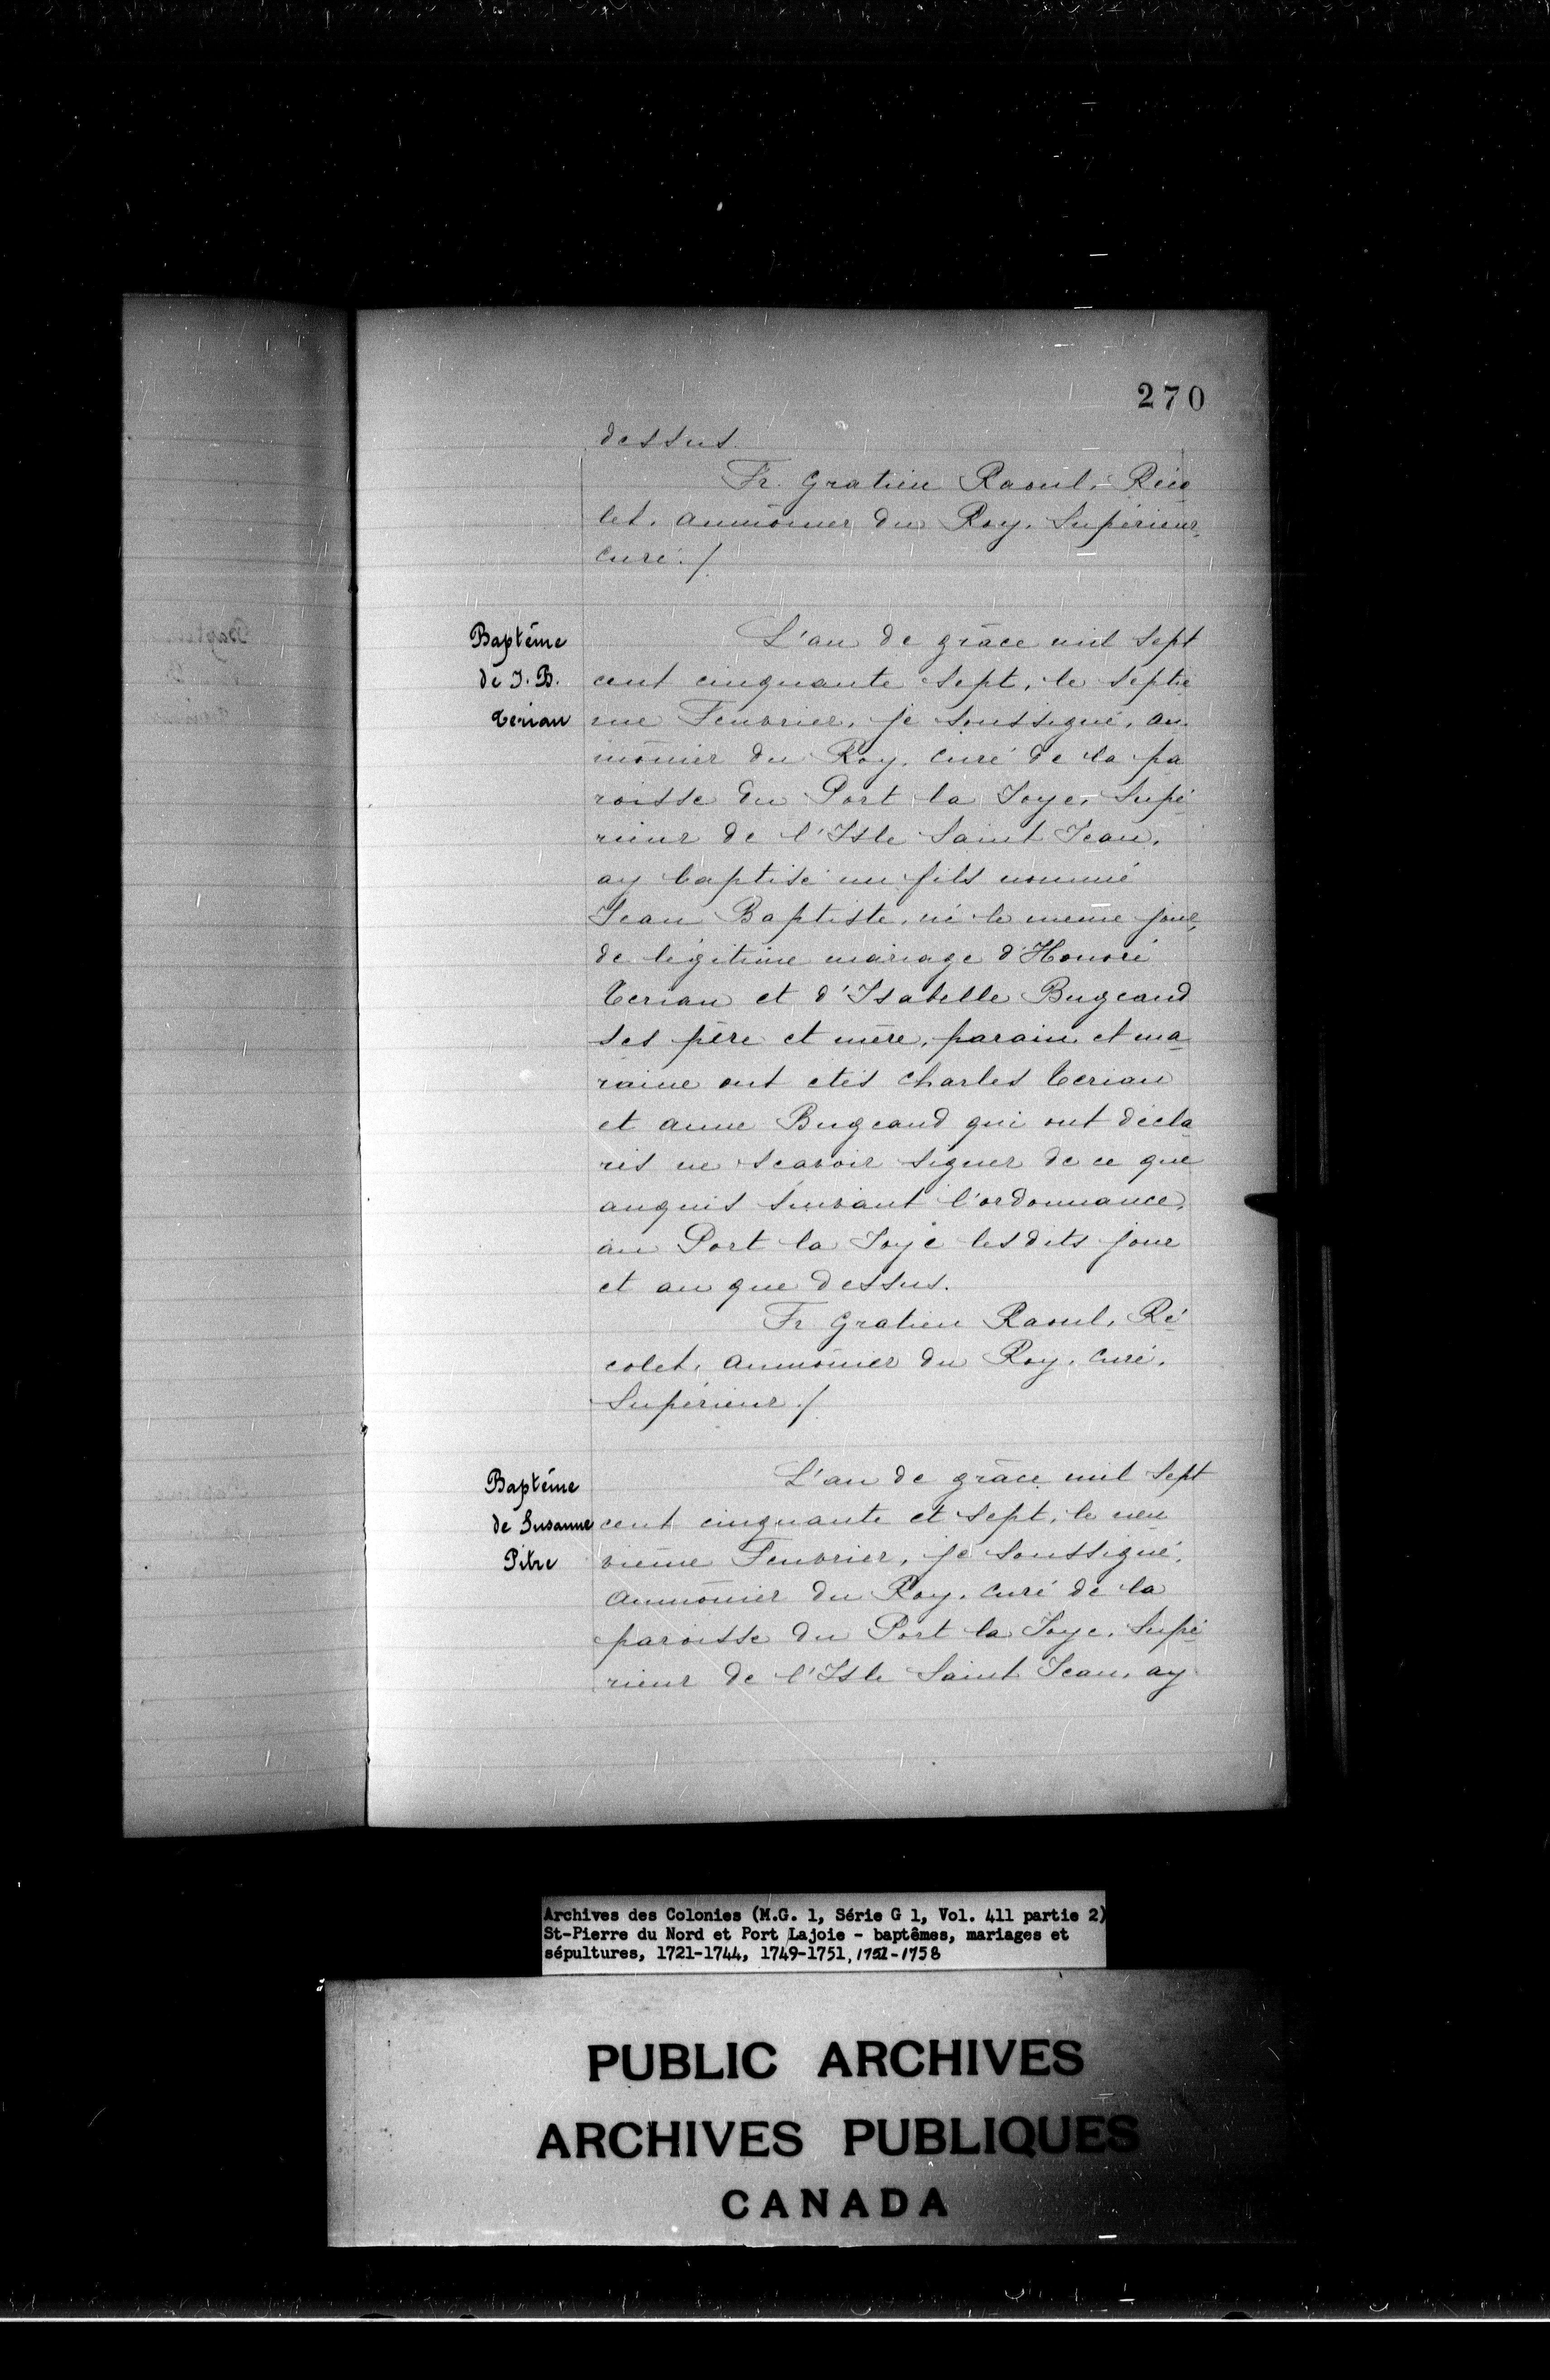 270
dessus.
Fr. Gratien Raoul, Réco
let, aumônier du Roy, Supérieur,
curé ./.
Baptême
de J. B.
Terian
L'an de grâce mil sept
cent cinquante sept, le septiè
me Feuvrier, je soussigné, au
mônier du Roy, curé de la pa
roisse du Port la Joye, Supé
rieur de l'Isle Saint Jean,
ay baptisé un fils nommé
Jean Baptiste, né le meme jour,
de légitime mariage d'Honoré
Terian et d'Isabelle Bugeaud
ses père et mère, parain et ma
raine ont etés Charles Terian
et anne Bugeaud qui ont décla
rés ne scavoir signer de ce que
anquis suivant l'ordonnance,
au Port la Joye lesdits jour
et an que dessus.
Fr Gratien Raoul, Ré
colet, aumônier du Roy, curé,
Supérieur ./
Baptême
de Susanne
Pitre
L'an de grâce mil sept
cent cinquante et sept, le neu
vieme Feuvrier, je soussigné,
aumônier du Roy, curé de la
paroisse du Port la Joye, Supé
rieur de l'Isle Saint Jean, ay
Archives des Colonies (M.G. 1, Série G 1, Vol. 411 partie 2)
St-Pierre du Nord et Port Lajoie - baptêmes, mariages et
sépultures, 1721-1744, 1749-1751, 1751-1758
PUBLIC ARCHIVES
ARCHIVES PUBLIQUES
CANADA